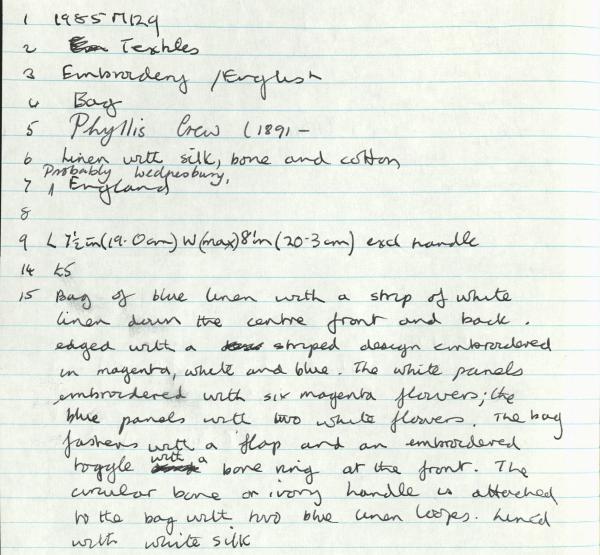 1 1985 M129
2 Textiles
3 Embroidery / English
4 Bag
5 Phyllis Crew (1891 -
6 Linen with silk, bone and cotton
Probably Wednesbury,
7 England
8
9 L 7½in (19.0cm) W (max) 8in (20.3cm) excl handle
14 £5
15 Bag of blue linen with a strip of white
linen down the centre front and back.
edged with a striped design embroidered
in magenta, white and blue. The white panels
embroidered with six magenta flowers; the
blue panels with two white flowers. The bag
fastens with a flap and an embroidered
toggle with a bone ring at the front. The
circular bone or ivory handle is attached
to the bag with two blue linen loops. Lined
with white silk